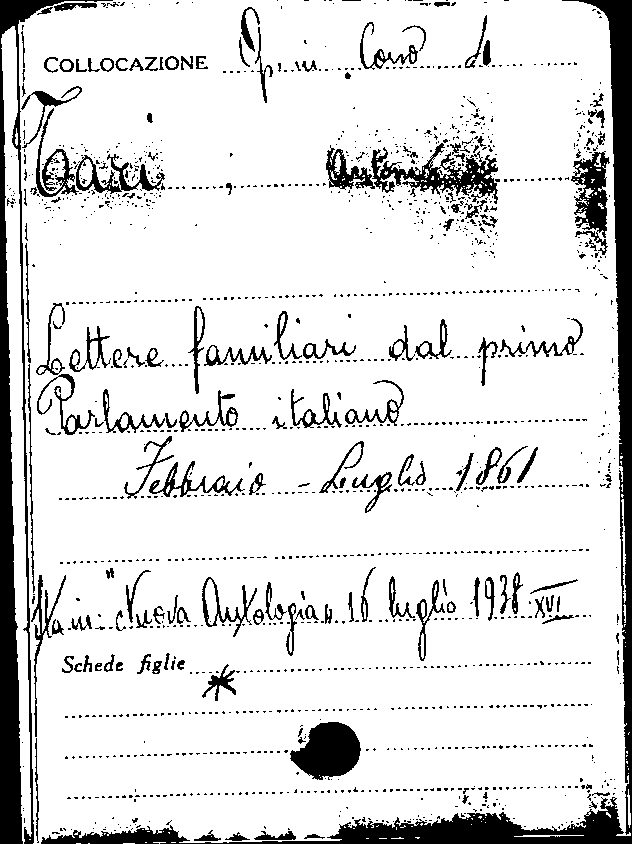 COLLOCAZIONE Op. in. Corso di
Tari, Antonio
Lettere familiari dal primo
Parlamento italiano
Febbraio - Luglio 1861
Sta in: "Nuova Antologia" 16 luglio 1938 XVI
Schede figlie